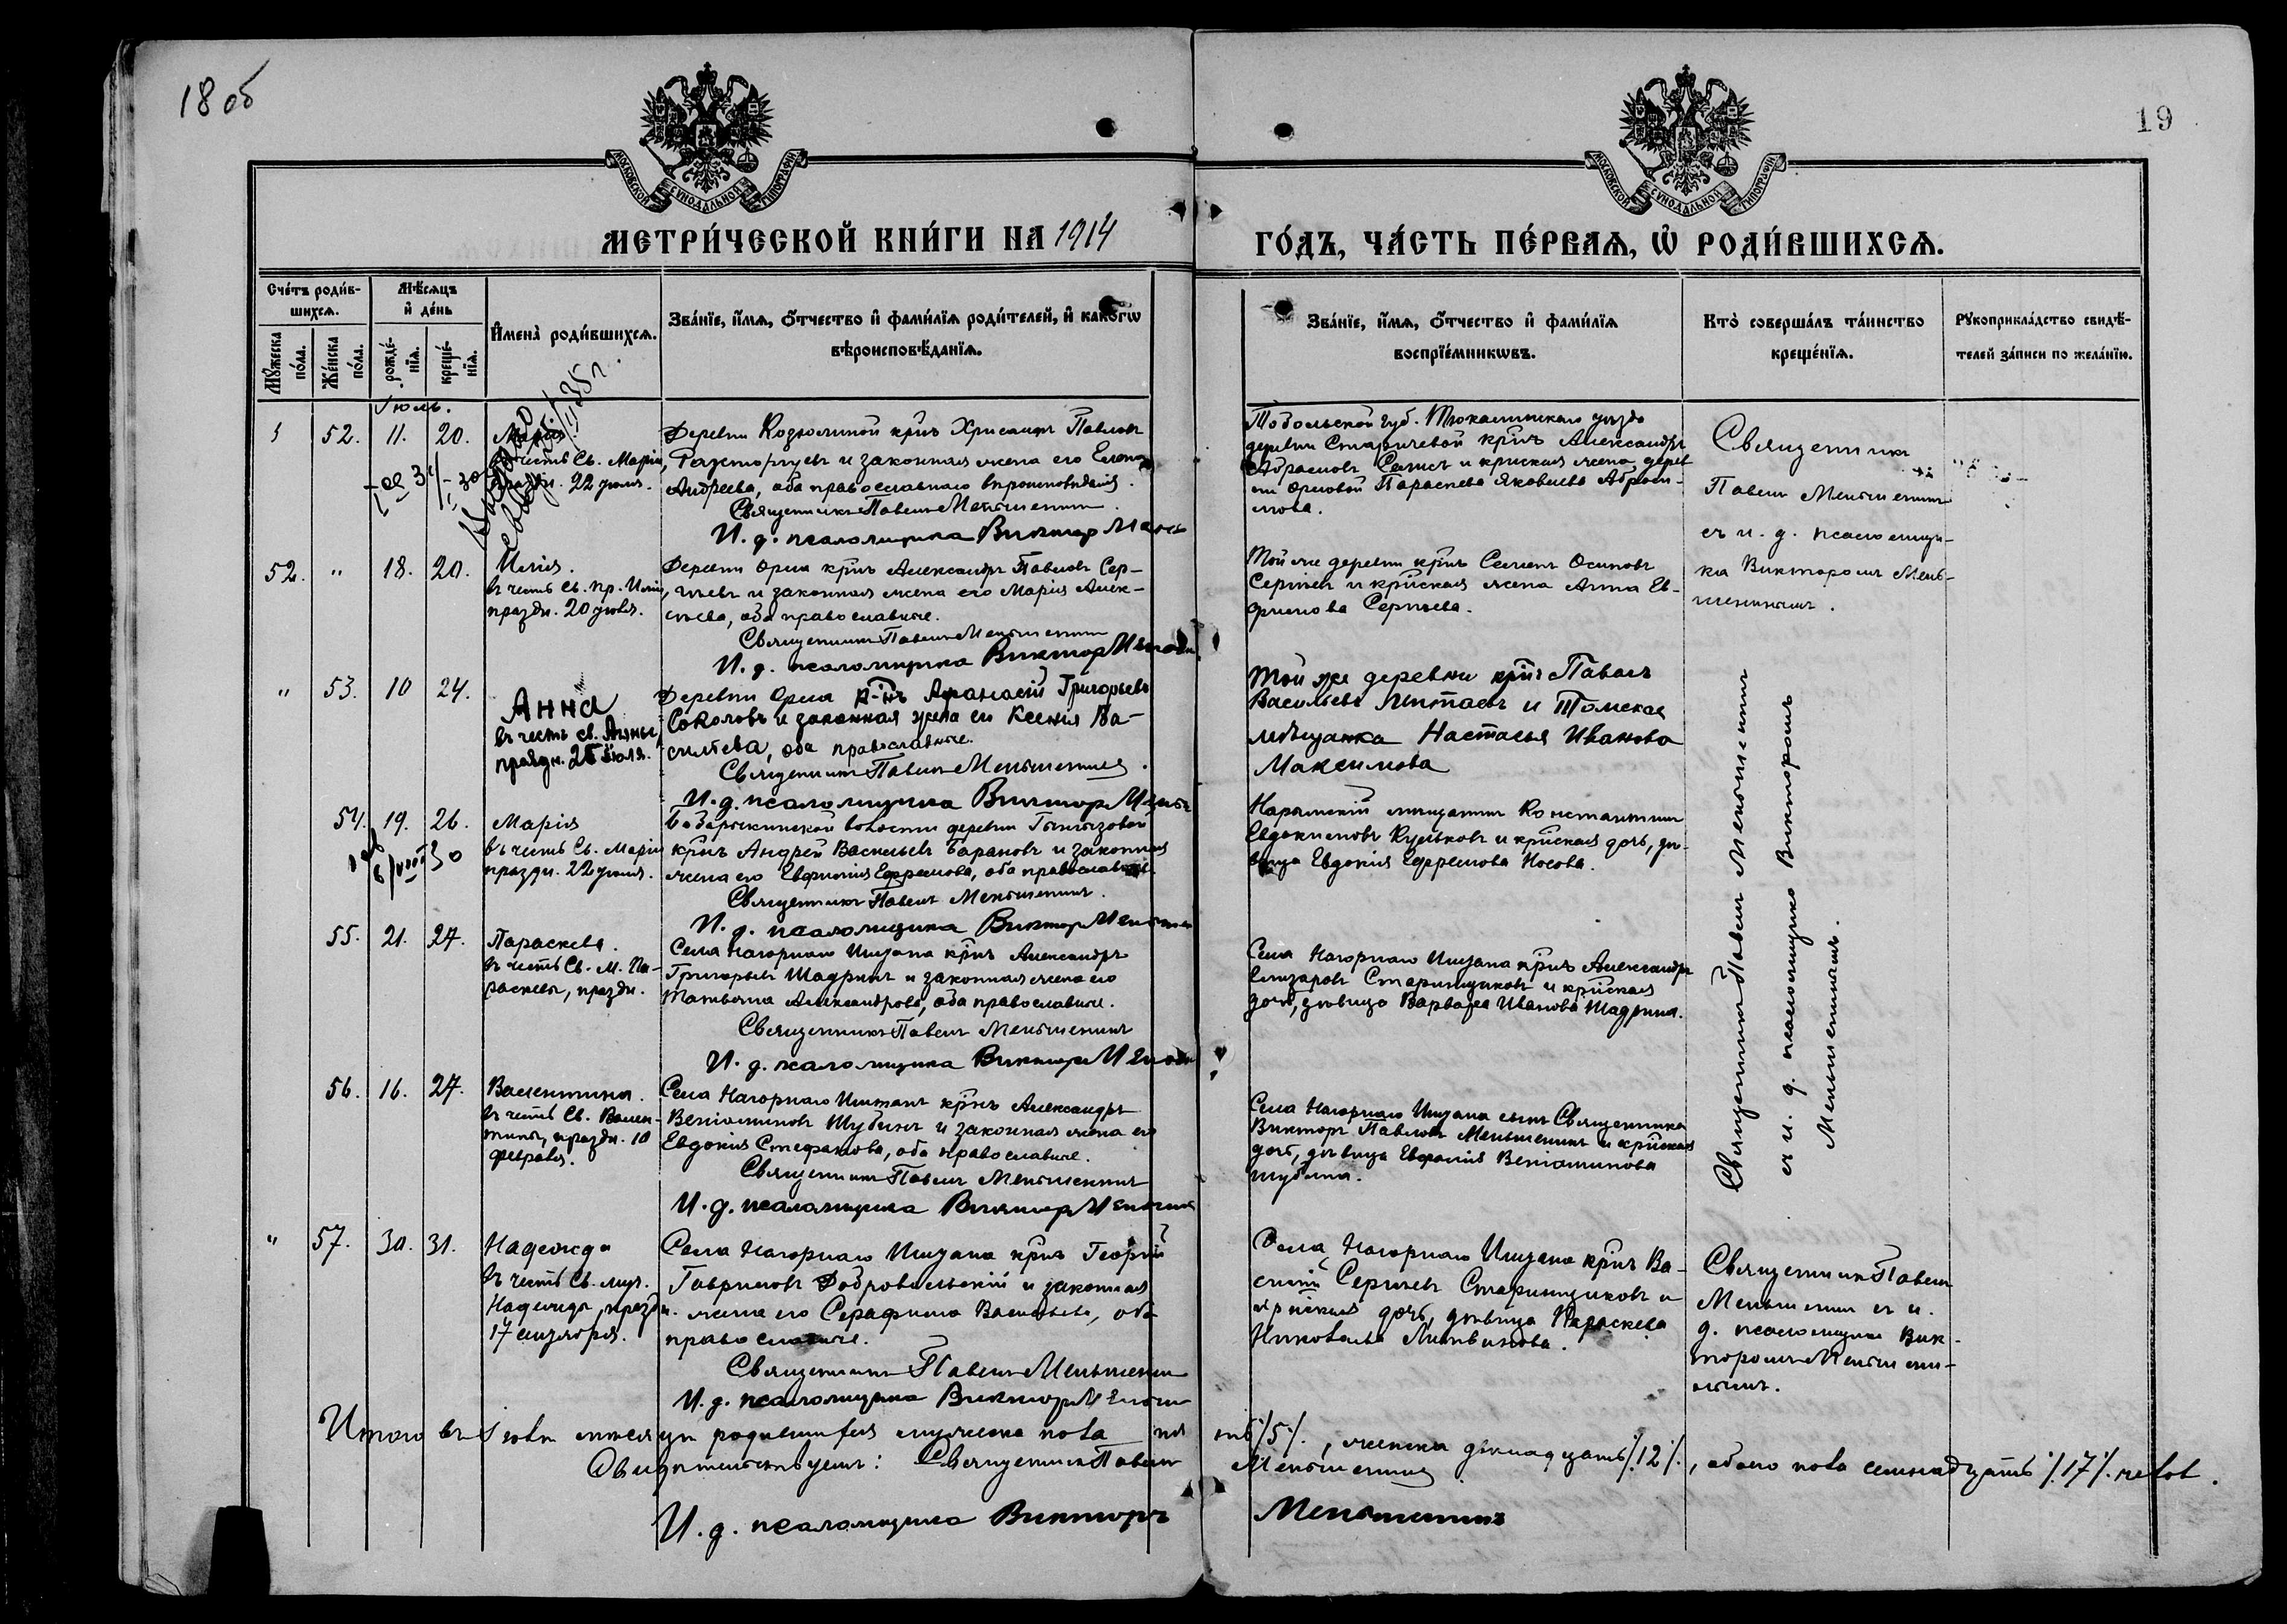 18 об
19
МОСКОВСКОЙ СУНОДАЛЬНОЙ ТИПОГРАФІИ
МОСКОВСКОЙ СУНОДАЛЬНОЙ ТИПОГРАФІИ
МЕТРИ́ЧЕСКОЙ КНИ́ГИ НА 1914
ГО́ДЪ, ЧА́СТЬ ПЕ́РВАѦ, Ѡ҆ РОДИ́ВШИХСѦ.
Сче́тъ роди́в-
шихсѧ.
Мꙋ́жеска по́ла.
Же́нска по́ла.
Мѣ́сѧцъ
и҆ де́нь
рожде́-
нїѧ.
креще́-
нїѧ.
И҆мена̀ роди́вшихсѧ.
Зва́нїе, и҆́мѧ, ѻ҆́тчество и҆ фами́лїѧ роди́телей, и҆ како́гѡ
вѣроисповѣ́данїѧ.
Зва́нїе, и҆́мѧ, ѻ҆́тчество и҆ фами́лїѧ
воспрїе́мникѡвъ.
Кто̀ соверша́лъ та́инство
креще́нїѧ.
Рꙋкоприкла́дство свидѣ́-
телей за́писи по жела́нїю.
Іюль.
52. 11. 20. Марія
въ честь Св. Маріи,
праздн. 22 іюля.
Деревни Козюлиной кр̃нъ Хрисанфъ Павловъ
и законная жена его Елена
Андреева, оба православнаго вѣроисповѣданія.
Священникъ Павелъ Меньшенинъ
И. д. псаломщика Викторъ
Тобольской губ. Тюкалинскаго уѣзда
деревни кр̃нъ Александръ
и кр̃нская жена, дерев
ни Орловой Параскева Яковлева Аброси-
мова.
Священникъ
Павелъ Меньшенинъ
съ и. д. псаломщи-
ка Викторомъ Мень-
шенинымъ.
52. " 18. 20. Илія.
въ честь Св. пр. Иліи,
праздн. 20 іюля.
Деревни Орла кр̃нъ Александръ Павловъ Сер-
гѣевъ и законная жена его Марія Алек-
сѣева, оба православные.
Священникъ Павелъ Меньшенинъ
И. д. псаломщика Викторъ
Той же деревни кр̃нъ Семенъ Осиповъ
Сергѣевъ и кр̃нская жена Анна Ев-
фимова Сергѣева.
" 53. 10 24. Анна
въ честь св. Анны,
праздн. 25 іюля.
Деревни Орла к-нъ Афанасій Григорьевъ
Соколовъ и законная жена его Ксенія Ва-
сильева, оба православные.
Священникъ Павелъ Меньшенинъ.
И. д. псаломщика Викторъ
Той же деревни кр̃нъ Павелъ
Васильевъ и Томская
мѣщанка Настасья Иванова
Максимова
54. 19. 26. Марія
въ честь Св. Маріи
праздн. 22 іюля.
Бабарыкинской волости деревни
кр̃нъ Андрей Васильевъ Барановъ и законная
жена его Евфимія Ефремова, оба православные.
Священникъ Павелъ Меньшенинъ.
И. д. псаломщика Викторъ
Нарымскій мѣщанинъ Константинъ
Евдокимовъ Кульковъ и кр̃нская дочь, дѣ-
вица Евдокія Ефремова Носова.
55. 21. 27. Параскева.
въ честь Св. М. Па-
раскевы, праздн.
Села Нагорнаго Иштана кр̃нъ Александръ
Григорьевъ Шадринъ и законная жена его
Татьяна Александрова, оба православные.
Священникъ Павелъ Меньшенинъ
И. д. псаломщика Викторъ
Села Нагорнаго Иштана кр̃нъ Александръ
Елизаровъ Старинщиковъ и кр̃нская
дочь, дѣвица Варвара Иванова Шадрина.
56. 16. 27. Валентина.
въ честь Св. Вален-
тины, праздн. 10
февраля.
Села Нагорнаго Иштанъ кр̃нъ Александръ
Веніаминовъ Шубинъ и законная жена его
Евдокія Стефанова, оба православные.
Священникъ Павелъ Меньшенинъ
И. д. псаломщика Викторъ
Села Нагорнаго Иштана сынъ Священника
Викторъ Павловъ Меньшенинъ и кр̃нская
дочь, дѣвица Веніаминова
Шубина.
Священникъ Павелъ Меньшенинъ
съ и. д. псаломщика Викторомъ
Меньшенинымъ.
" 57. 30. 31. Надежда
въ честь Св. муч.
Надежды, праздн.
17 сентября.
Села Нагорнаго Иштана кр̃нъ Георгій
Гавриловъ Добровольскій и законная
жена его Серафима Васильева, оба
православные.
Священникъ Павелъ Меньшенинъ
И. д. псаломщика Викторъ
Села Нагорнаго Иштана кр̃нъ Ва-
силій Сергѣевъ Старинщиковъ и
кр̃нская дочь, дѣвица Параскева
Николаева Литвинова.
Священникъ Павелъ
Меньшенинъ съ и.
д. псаломщика Вик-
торомъ Меньшени-
нымъ.
Итого въ Іюлѣ мѣсяцѣ родившихся мужеска пола пять /5/., женска двѣнадцать /.12/., обоего пола семнадцать /.17/. челов.
Свидѣтельствуемъ: Священникъ Павелъ Меньшенинъ
И. д. псаломщика Викторъ Меньшенинъ